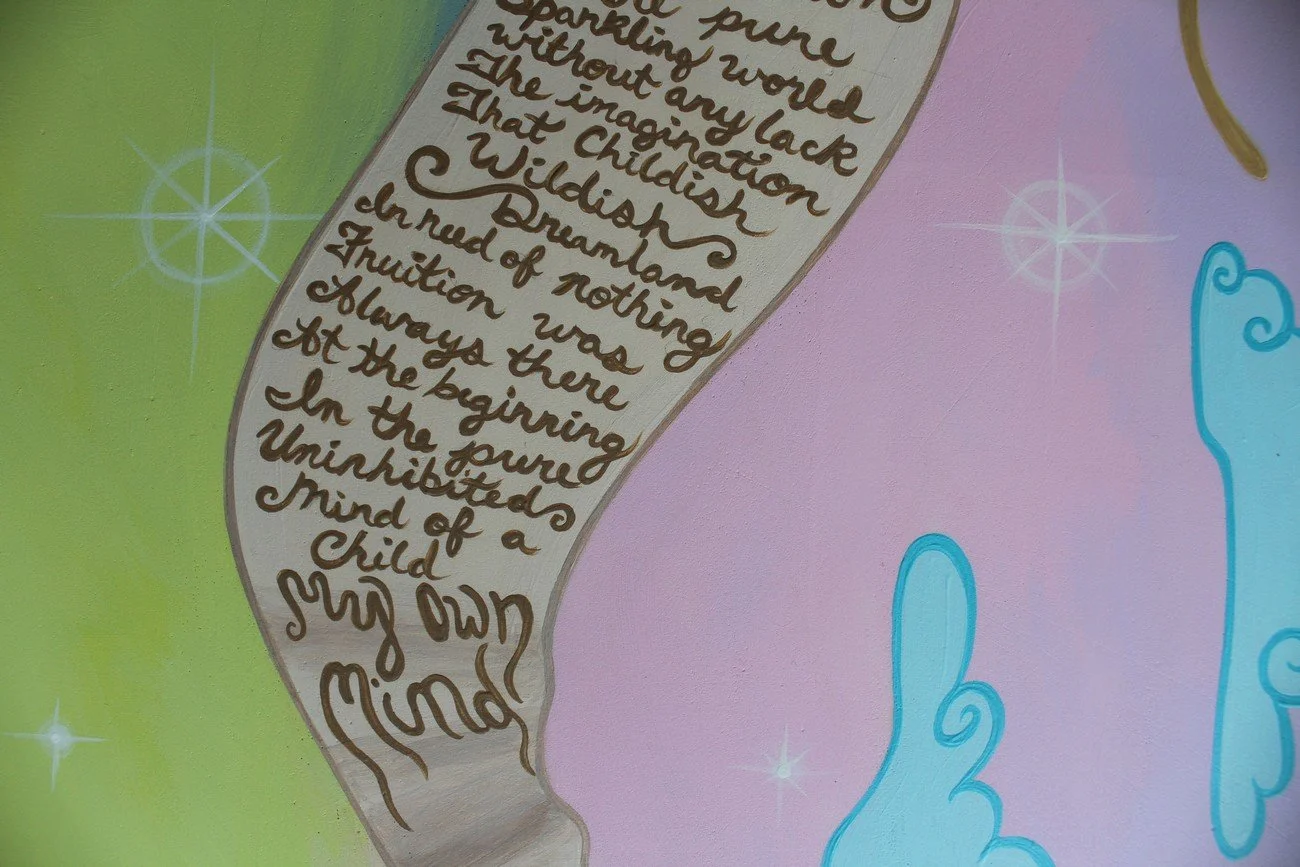 pure
Sparkling world
without any lack
The imagination
That Childish
Wildish
Dreamland
In need of nothing
Fruition was
Always there
At the beginning
In the pure
Uninhibited
Mind of a
Child
My own
Mind